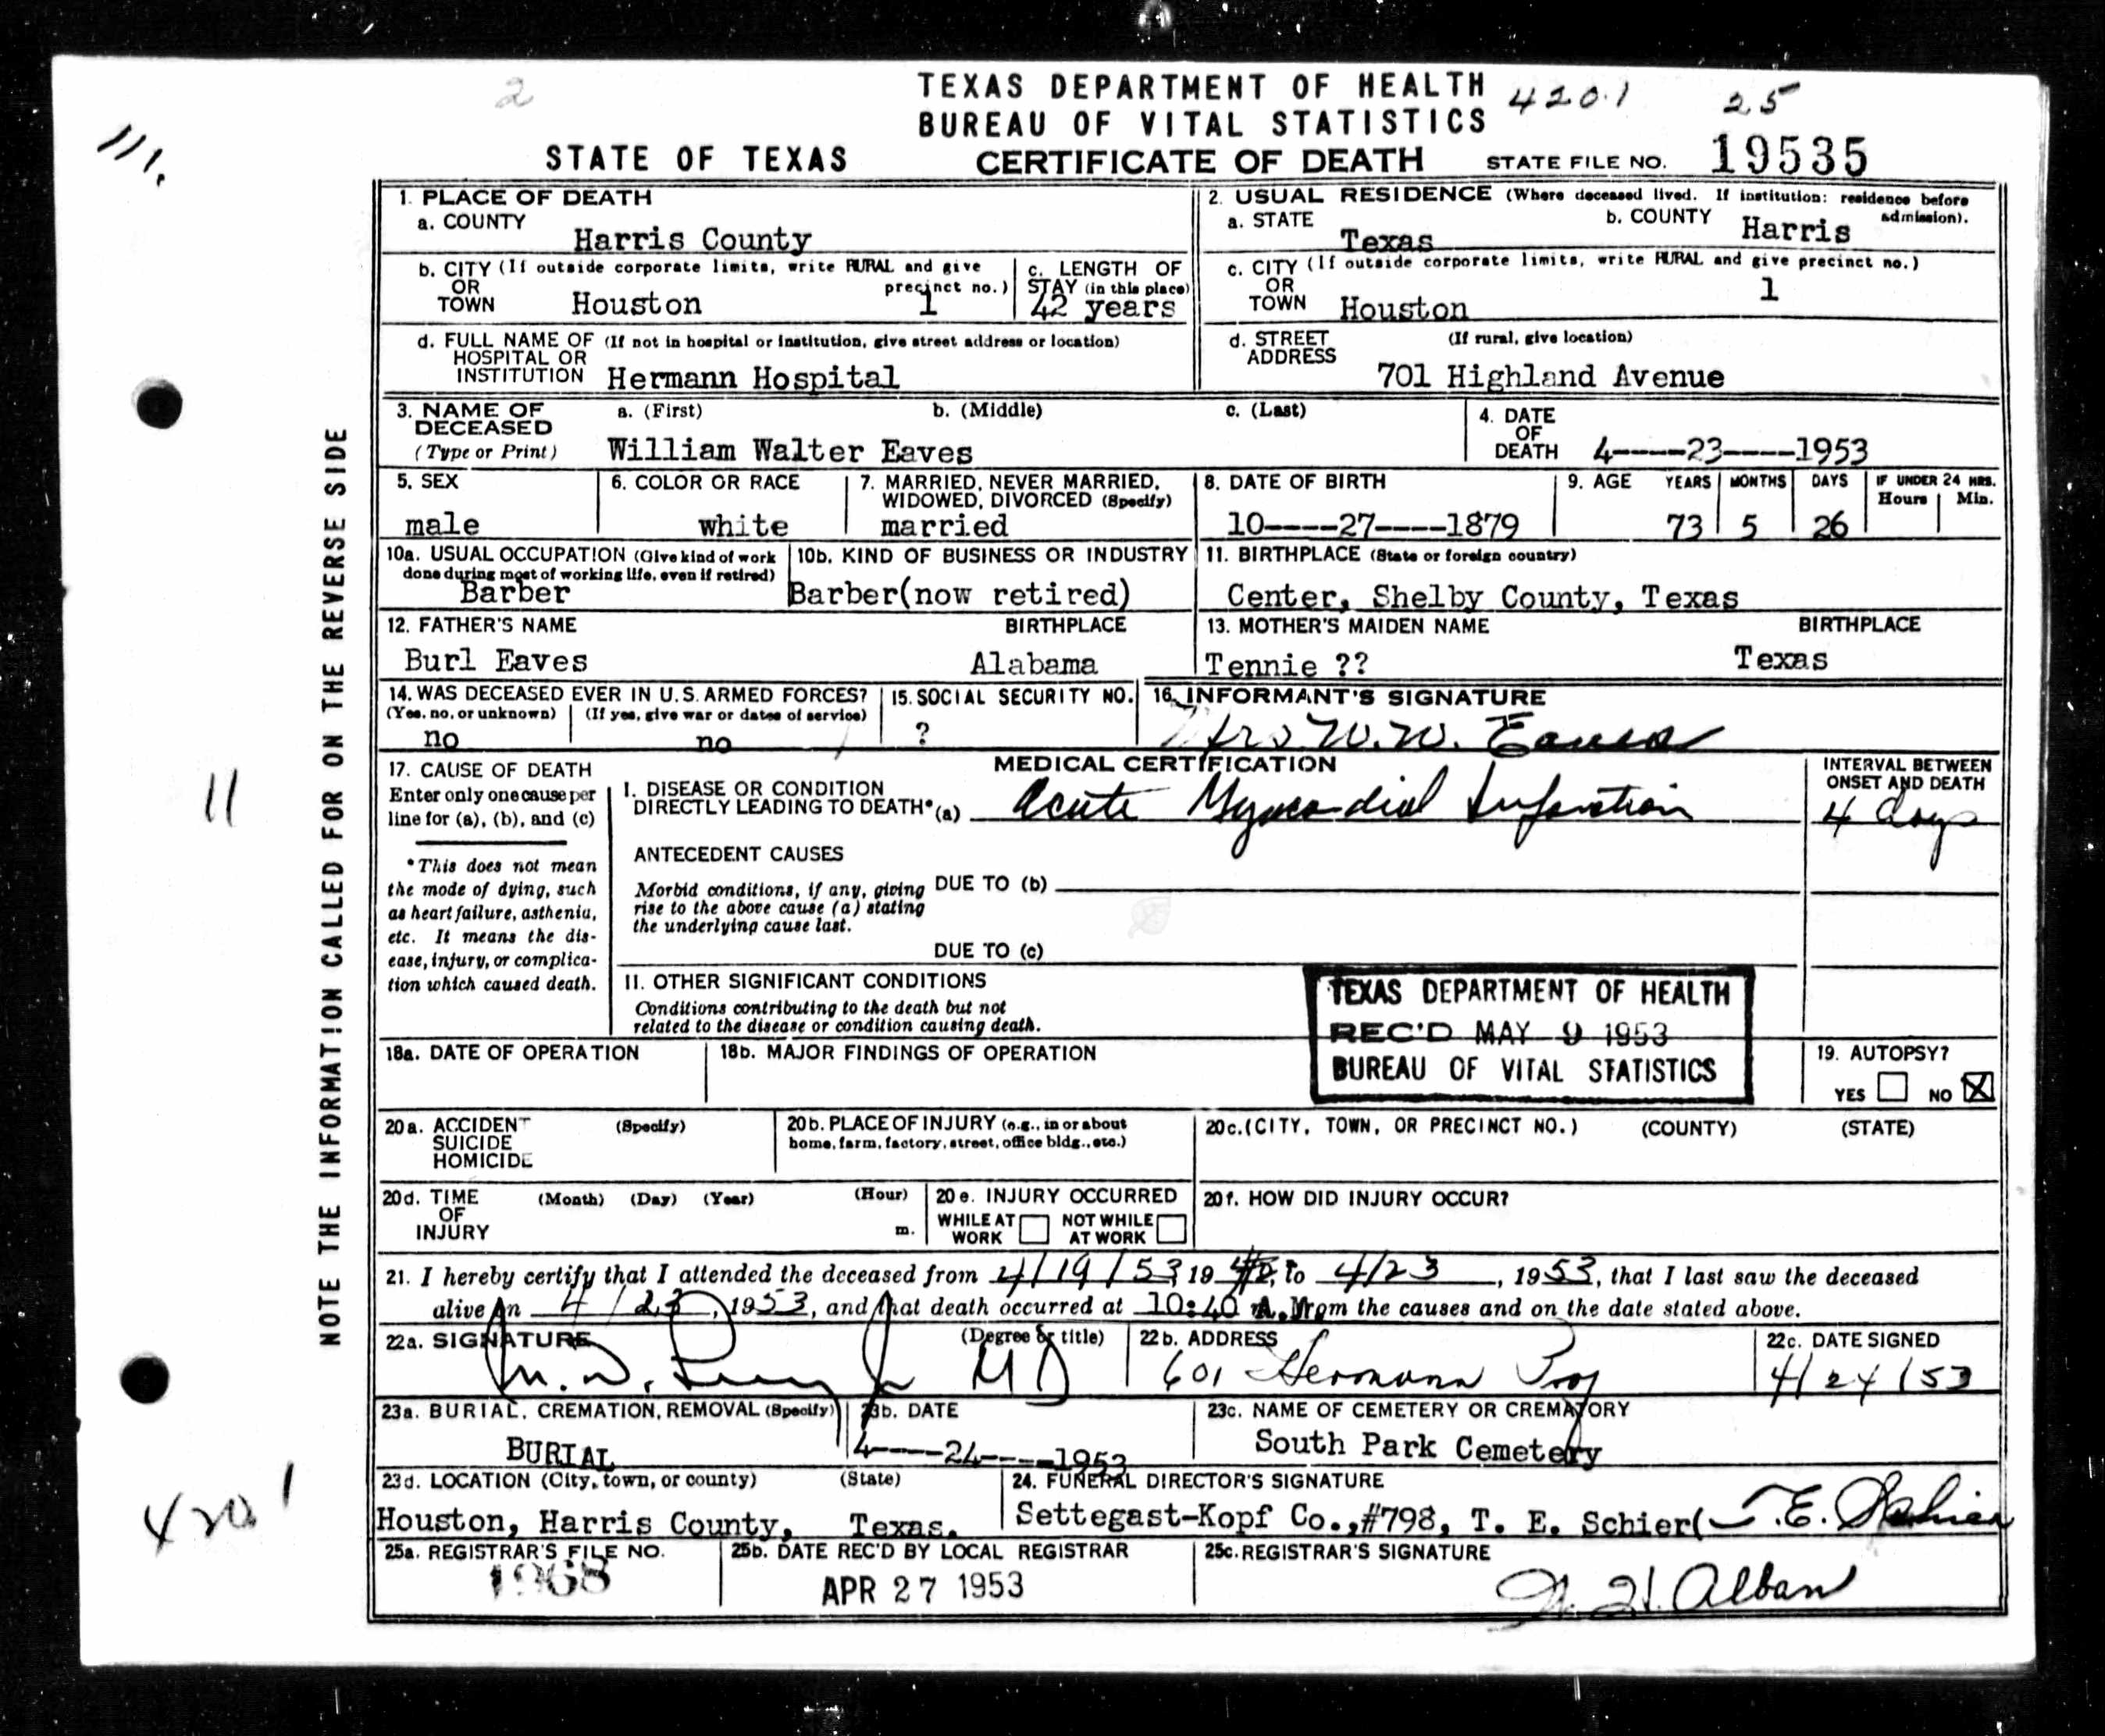 2
TEXAS DEPARTMENT OF HEALTH 420.1 25
BUREAU OF VITAL STATISTICS
111.
STATE OF TEXAS CERTIFICATE OF DEATH STATE FILE NO. 19535
NOTE THE INFORMATION CALLED FOR ON THE REVERSE SIDE
11
420.1
1. PLACE OF DEATH
a. COUNTY
Harris County
2. USUAL RESIDENCE (Where deceased lived. If institution: residence before admission).
a. STATE Texas b. COUNTY Harris
b. CITY (If outside corporate limits, write RURAL and give precinct no.)
OR
TOWN Houston 1
c. LENGTH OF
STAY (in this place)
42 years
c. CITY (If outside corporate limits, write RURAL and give precinct no.)
OR
TOWN Houston 1
d. FULL NAME OF (If not in hospital or institution, give street address or location)
HOSPITAL OR
INSTITUTION Hermann Hospital
d. STREET (If rural, give location)
ADDRESS
701 Highland Avenue
3. NAME OF DECEASED a. (First) b. (Middle) c. (Last)
(Type or Print) William Walter Eaves
4. DATE
OF
DEATH 4----23----1953
5. SEX
male
6. COLOR OR RACE
white
7. MARRIED, NEVER MARRIED,
WIDOWED, DIVORCED (Specify)
married
8. DATE OF BIRTH
10----27----1879
9. AGE YEARS MONTHS DAYS IF UNDER 24 HRS.
Hours Min.
73 5 26
10a. USUAL OCCUPATION (Give kind of work
done during most of working life, even if retired)
Barber
10b. KIND OF BUSINESS OR INDUSTRY
Barber(now retired)
11. BIRTHPLACE (State or foreign country)
Center, Shelby County, Texas
12. FATHER'S NAME BIRTHPLACE
Burl Eaves Alabama
13. MOTHER'S MAIDEN NAME BIRTHPLACE
Tennie ?? Texas
14. WAS DECEASED EVER IN U.S. ARMED FORCES?
(Yes, no, or unknown) (If yes, give war or dates of service)
no no
15. SOCIAL SECURITY NO.
?
16. INFORMANT'S SIGNATURE
Mrs W.W. Eaves
17. CAUSE OF DEATH
Enter only one cause per
line for (a), (b), and (c)
*This does not mean
the mode of dying, such
as heart failure, asthenia,
etc. It means the dis-
ease, injury, or complica-
tion which caused death.
MEDICAL CERTIFICATION
I. DISEASE OR CONDITION
DIRECTLY LEADING TO DEATH* (a) Acute Myocardial Infarction
INTERVAL BETWEEN
ONSET AND DEATH
4 days
ANTECEDENT CAUSES
Morbid conditions, if any, giving
rise to the above cause (a) stating
the underlying cause last.
DUE TO (b)
DUE TO (c)
II. OTHER SIGNIFICANT CONDITIONS
Conditions contributing to the death but not
related to the disease or condition causing death.
TEXAS DEPARTMENT OF HEALTH
REC'D MAY 9 1953
BUREAU OF VITAL STATISTICS
18a. DATE OF OPERATION
18b. MAJOR FINDINGS OF OPERATION
19. AUTOPSY?
YES NO X
20a. ACCIDENT (Specify)
SUICIDE
HOMICIDE
20b. PLACE OF INJURY (e.g., in or about
home, farm, factory, street, office bldg., etc.)
20c. (CITY, TOWN, OR PRECINCT NO.) (COUNTY) (STATE)
20d. TIME (Month) (Day) (Year) (Hour)
OF
INJURY m.
20e. INJURY OCCURRED
WHILE AT WORK NOT WHILE AT WORK
20f. HOW DID INJURY OCCUR?
21. I hereby certify that I attended the deceased from 4/19/53 19 , to 4/23, 1953, that I last saw the deceased
alive on 4/23, 1953, and that death occurred at 10:40 A.M. from the causes and on the date stated above.
22a. SIGNATURE (Degree or title)
M.D. Jr MD
22b. ADDRESS
601 Hermann Prof
22c. DATE SIGNED
4/24/53
23a. BURIAL, CREMATION, REMOVAL (Specify)
BURIAL
23b. DATE
4----24----1953
23c. NAME OF CEMETERY OR CREMATORY
South Park Cemetery
23d. LOCATION (City, town, or county) (State)
Houston, Harris County, Texas.
24. FUNERAL DIRECTOR'S SIGNATURE
Settegast-Kopf Co.,#798, T. E. Schier( T.E. Schier
25a. REGISTRAR'S FILE NO.
1968
25b. DATE REC'D BY LOCAL REGISTRAR
APR 27 1953
25c. REGISTRAR'S SIGNATURE
H. Alban